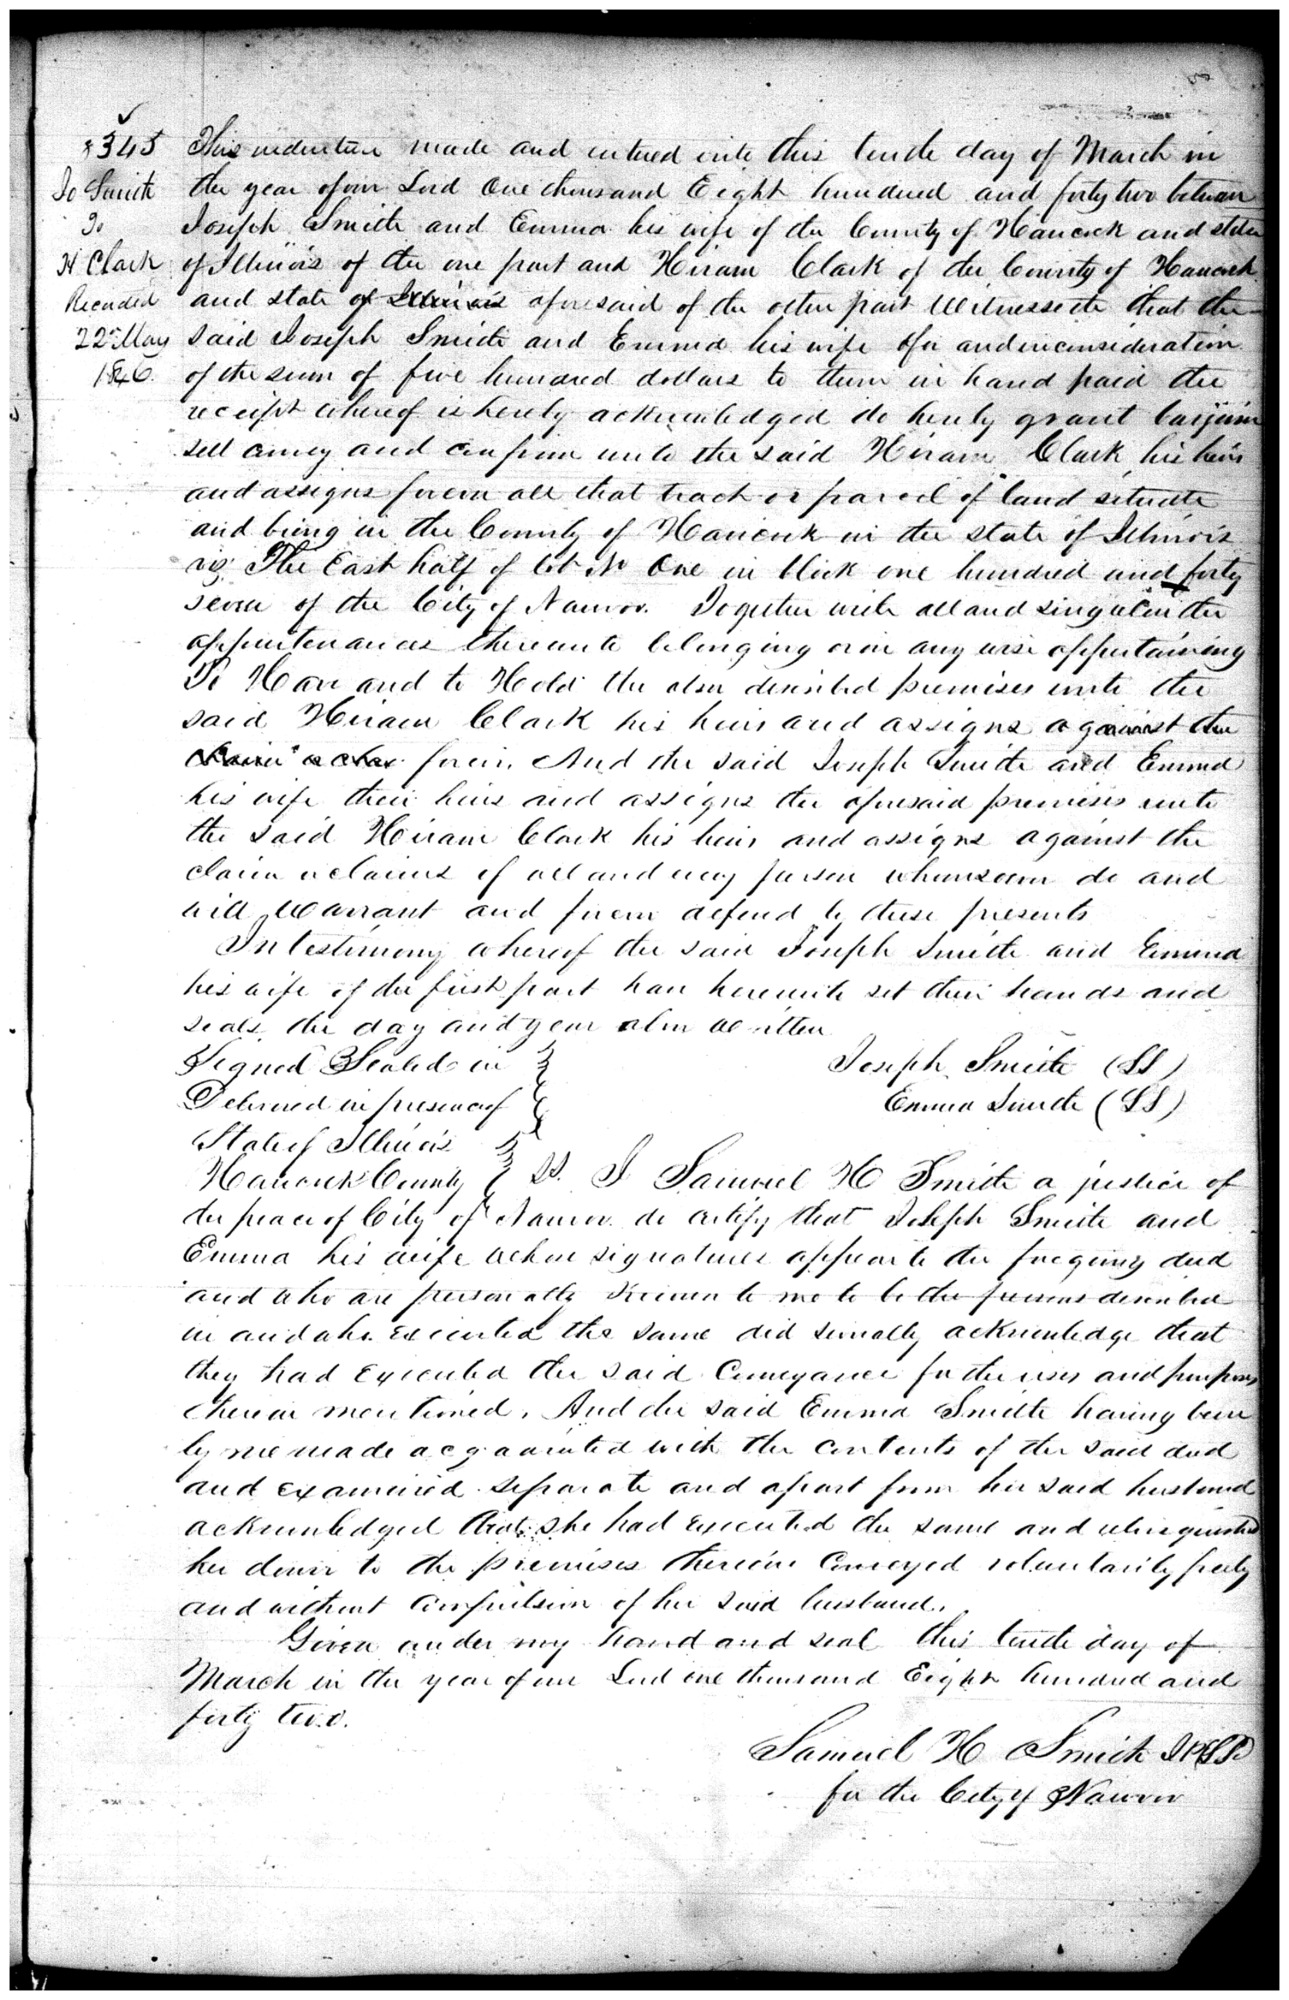 3345
Jo Smith
To
H Clark
Recorded
22nd May
1846.
This indenture made and entered into this tenth day of March in
the year of our Lord One thousand Eight hundred and forty two between
Joseph Smith and Emma his wife of the County of Hancock and state
of Illinois of the one part and Hiram Clark of the County of Hancock
and state of Illinois aforesaid of the other part Witnesseth that the
said Joseph Smith and Emma his wife for and in consideration
of the sum of five hundred dollars to them in hand paid the
receipt whereof is hereby acknowledged do hereby grant bargain
sell convey and confirm unto the said Hiram Clark his heirs
and assigns forever all that tract or parcel of land situate
and being in the County of Hancock in the state of Illinois
viz. The East half of lot No One in block one hundred and forty
seven of the City of Nauvoo. Together with all and singular the
appurtenances thereunto belonging or in any wise appertaining
To Have and to Hold the above described premises unto the
said Hiram Clark his heirs and assigns against the
forever. And the said Joseph Smith and Emma
his wife their heirs and assigns the aforesaid premises unto
the said Hiram Clark his heirs and assigns against the
claim or claims of all and every person whomsoever do and
will warrant and forever defend by these presents
In testimony whereof the said Joseph Smith and Emma
his wife of the first part have hereunto set their hands and
seals the day and year above written
Signed Sealed in
Joseph Smith (SS)
Delivered in presence of
Emma Smith (SS)
State of Illinois
Hancock County SS. I Samuel H Smith a justice of
the peace of City of Nauvoo do certify that Joseph Smith and
Emma his wife whose signatures appear to the foregoing deed
and who are personally known to me to be the persons described
in and who executed the same did severally acknowledge that
they had executed the said conveyance for the uses and purposes
therein mentioned. And the said Emma Smith having been
by me made acquainted with the contents of the said deed
and examined separate and apart from her said husband
acknowledged that she had executed the same and relinquished
her dower to the premises therein conveyed voluntarily freely
and without compulsion of her said husband.
Given under my hand and seal this tenth day of
March in the year of our Lord one thousand Eight hundred and
forty two.
Samuel H Smith JP (SS)
for the City of Nauvoo